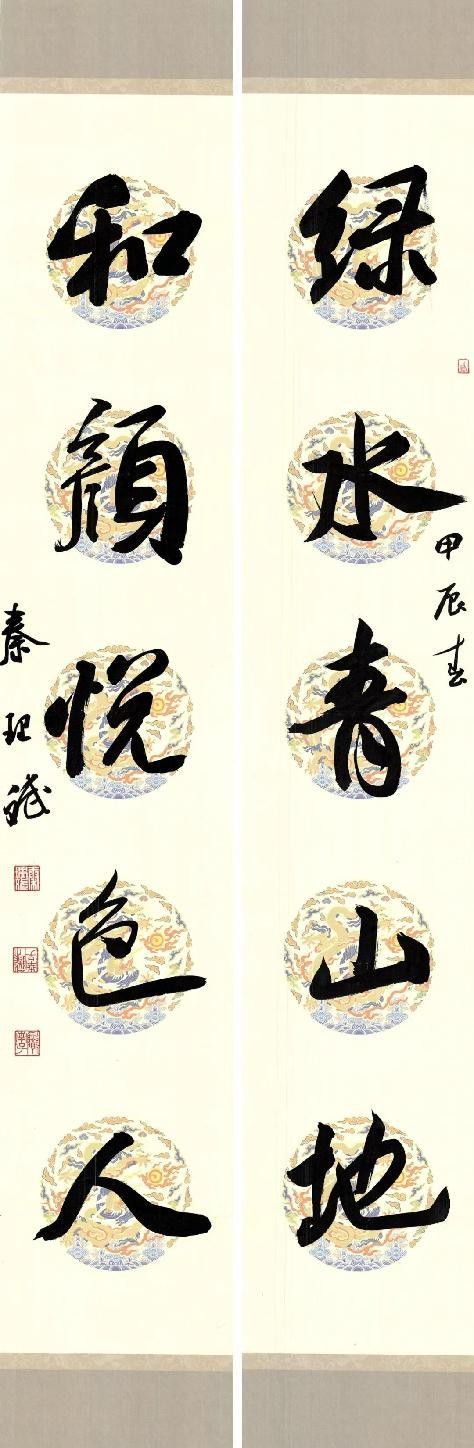 绿水青山地
甲辰春
和顏悦色人
秦